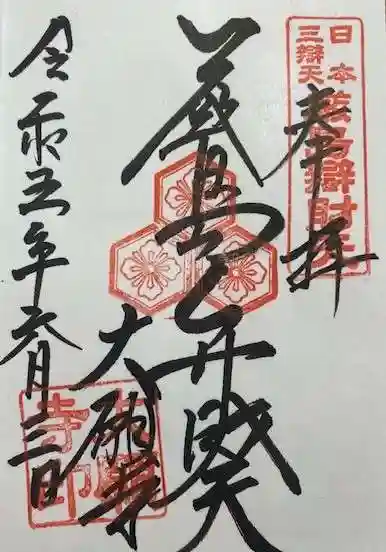 日本
三辯天
嚴島辯財天
奉拝
嚴島弁財天
大願寺
大願
寺印
令和五年六月三日